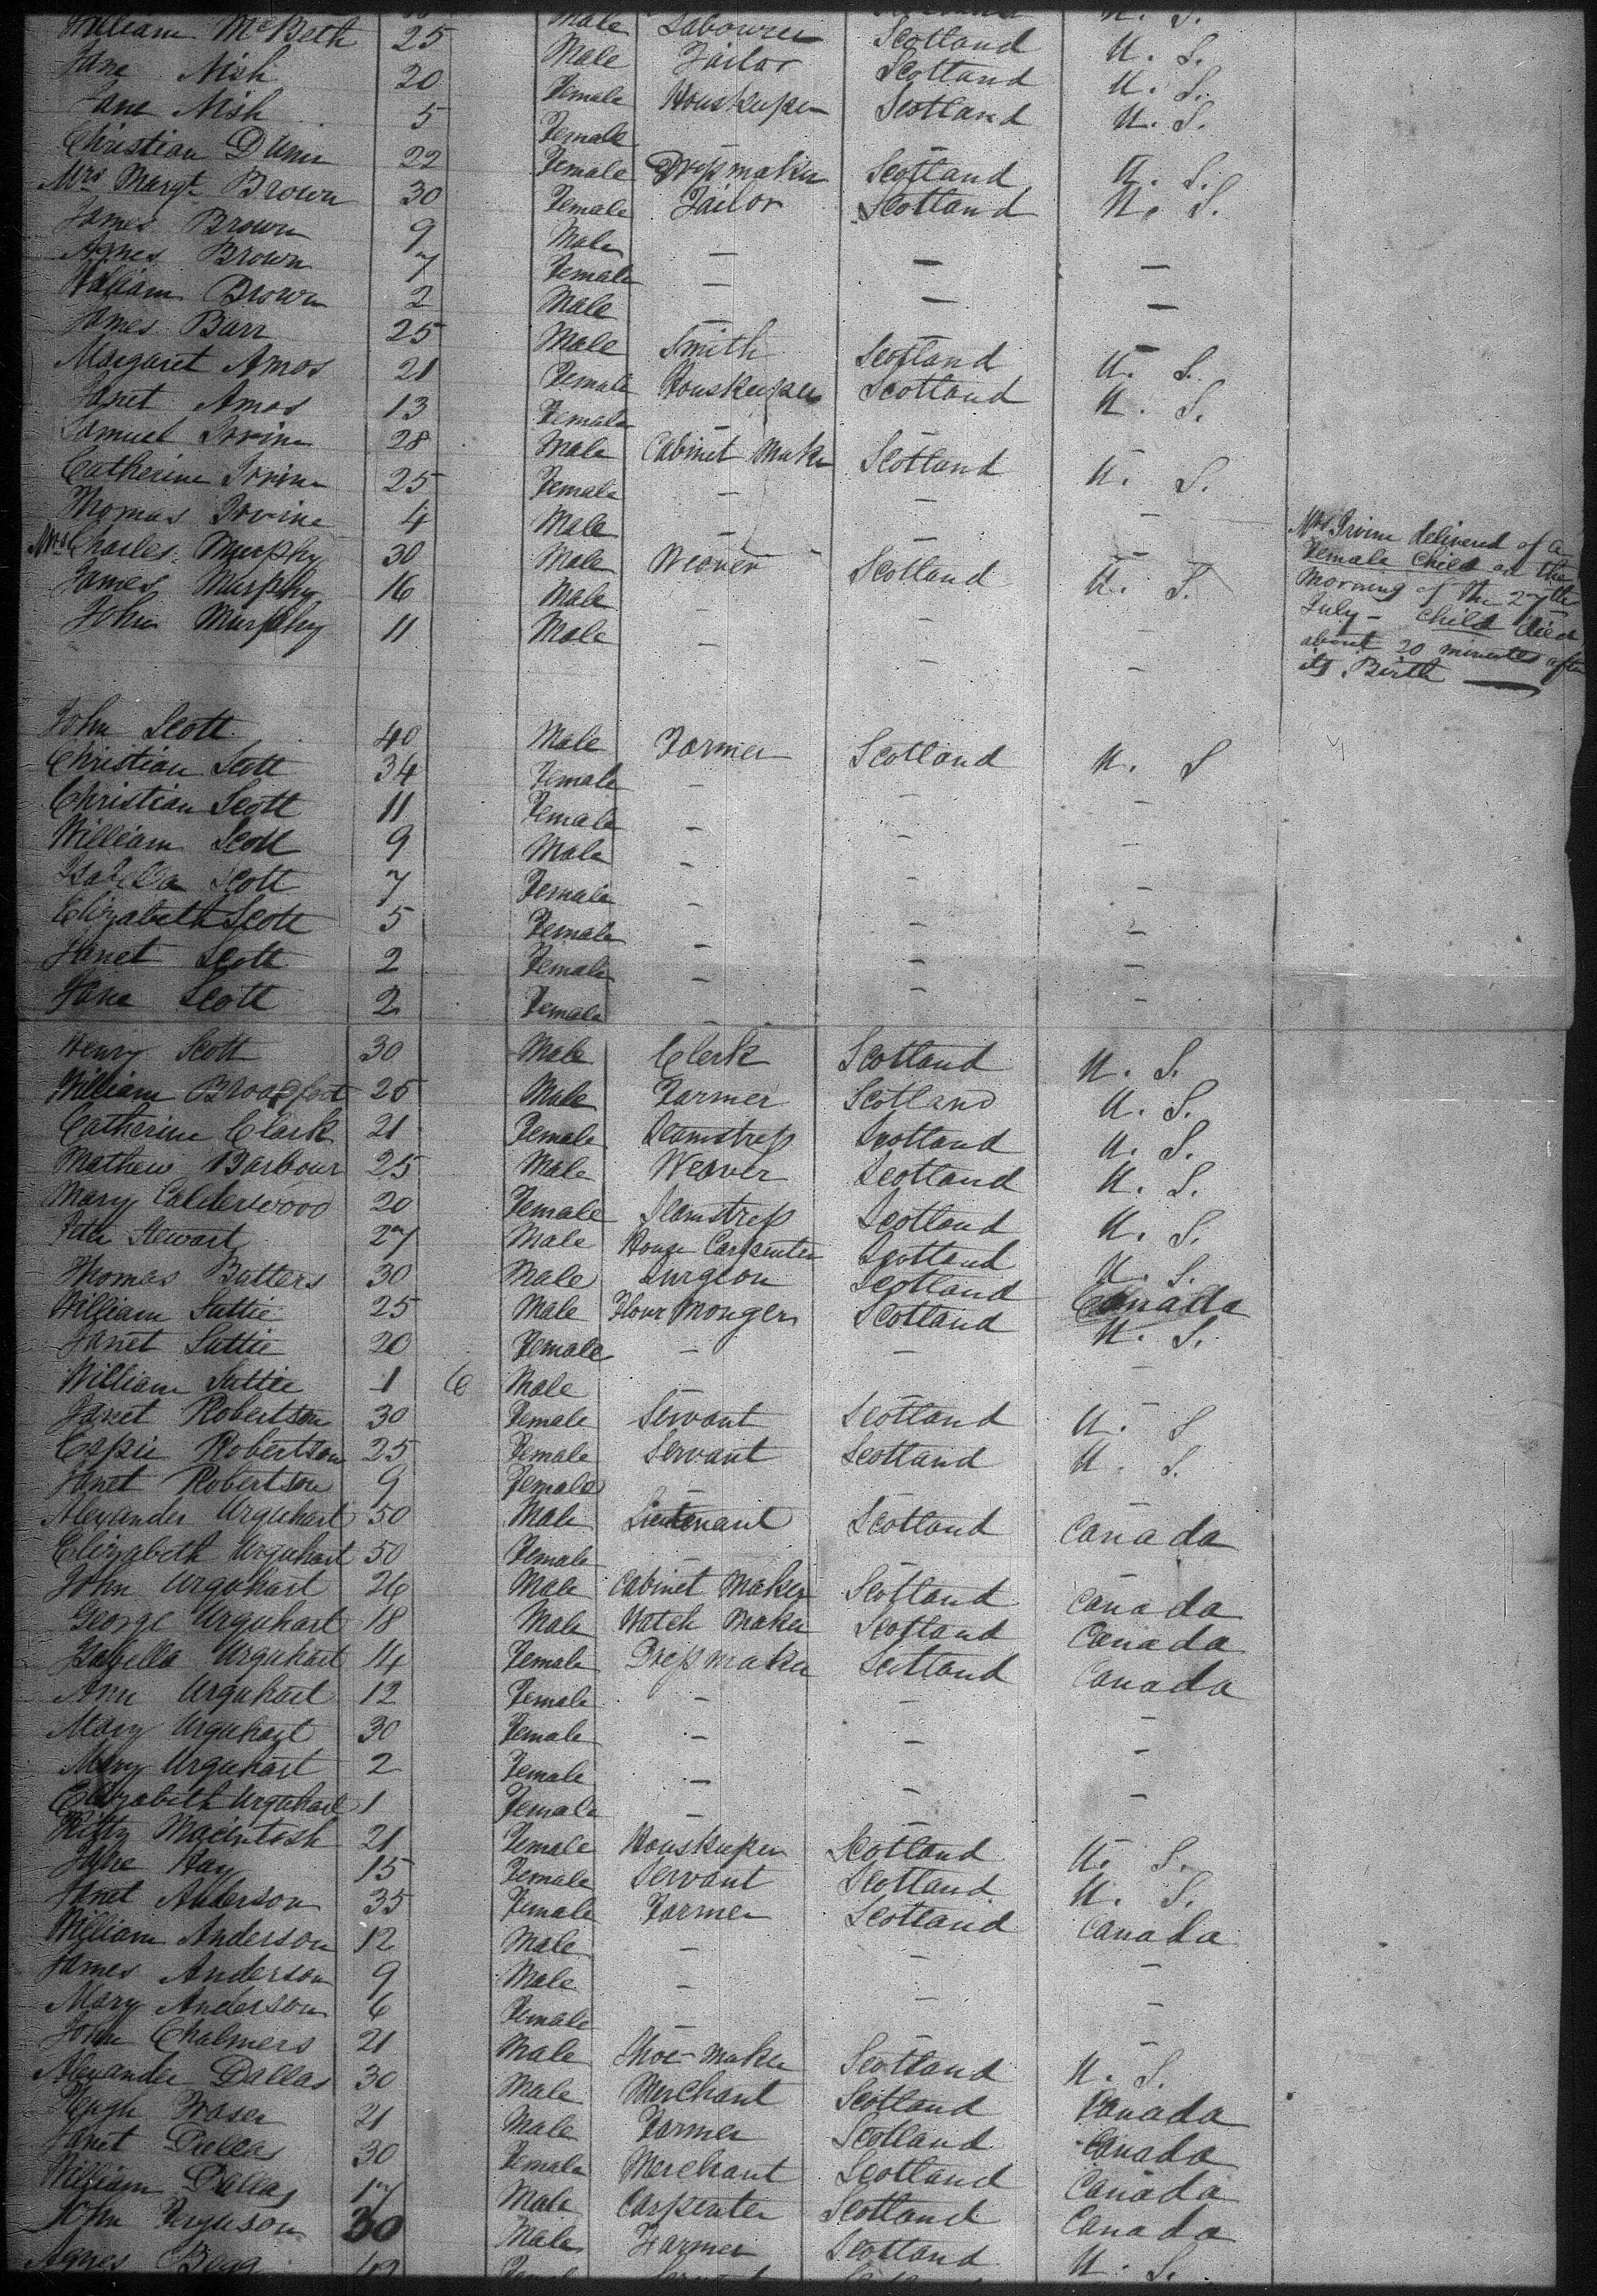 Male Labourer Scotland U. S.
William McBeth 25 Male Tailor Scotland U. S.
Jane Nish 20 Female Houskeeper Scotland U. S.
Jane Nish 5 Female
Christian Dunn 22 Female Dressmaker Scotland U. S.
Mrs Margt Brown 30 Female Tailor Scotland U. S.
James Brown 9 Male — — —
Agnes Brown 7 Female — — —
William Brown 2 Male — — —
James Barr 25 Male Smith Scotland U. S.
Margaret Amos 21 Female Houskeeper Scotland U. S.
Janet Amos 13 Female — — —
Samuel Irvine 28 Male Cabinet Maker Scotland U. S.
Catherine Irvine 25 Female — — —
Thomas Irvine 4 Male — — —
Mrs Charles Murphy 30 Male Weaver Scotland U. S.
James Murphy 16 Male — — —
John Murphy 11 Male — — —
Mrs. Irvine delivered of a
Female Child on the
Morning of the 27th
July — Child died
about 20 minutes after
its Birth —
John Scott 40 Male Farmer Scotland U. S
Christian Scott 34 Female — — —
Christian Scott 11 Female — — —
William Scott 9 Male — — —
Isabella Scott 7 Female — — —
Elizabeth Scott 5 Female — — —
Janet Scott 2 Female — — —
Jane Scott 2 Female — — —
Henry Scott 30 Male Clerk Scotland U. S.
William Broadfoot 25 Male Farmer Scotland U. S.
Catherine Clark 21 Female Seamstress Scotland U. S.
Mathew Barbour 25 Male Weaver Scotland U. S.
Mary Calderwood 20 Female Seamstress Scotland U. S.
Peter Stewart 27 Male House Carpenter Scotland U. S.
Thomas Batters 30 Male Surgeon Scotland Canada
William Suttie 25 Male Flour Monger Scotland U. S.
Janet Suttie 20 Female — — —
William Suttie 1 6 Male
Janet Robertson 30 Female Servant Scotland U. S
Espie Robertson 25 Female Servant Scotland U. S.
Janet Robertson 9 Female — — —
Alexander Urquhart 50 Male Lieutenant Scotland Canada
Elizabeth Urquhart 50 Female — — —
John Urquhart 26 Male Cabinet Maker Scotland Canada
George Urquhart 18 Male Watch Maker Scotland Canada
Isabella Urquhart 14 Female Dressmaker Scotland Canada
Ann Urquhart 12 Female — — —
Mary Urquhart 30 Female — — —
Mary Urquhart 2 Female — — —
Elizabeth Urquhart 1 Female — — —
Kitty Macintosh 21 Female Houskeeper Scotland U. S.
Jane Hay 15 Female Servant Scotland U. S.
Janet Anderson 35 Female Farmer Scotland Canada
William Anderson 12 Male — — —
James Anderson 9 Male — — —
Mary Anderson 6 Female — — —
John Chalmers 21 Male Shoe-maker Scotland U. S.
Alexander Dallas 30 Male Merchant Scotland Canada
Hugh Fraser 21 Male Farmer Scotland Canada
Janet Dallas 30 Female Merchant Scotland Canada
William Dallas 17 Male Carpenter Scotland Canada
John Ferguson 30 Male Farmer Scotland U. S.
Agnes Begg Female Servant